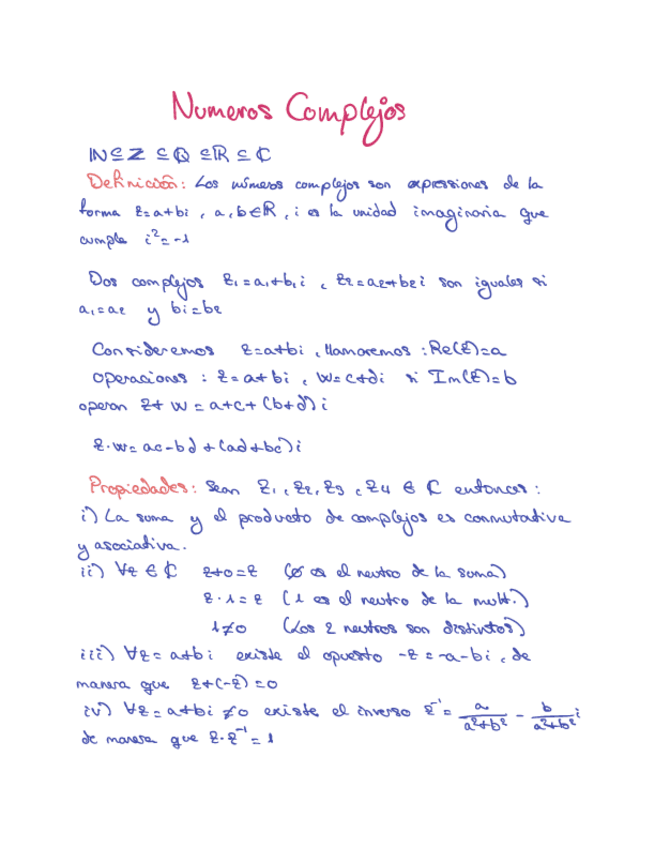 Numeros Complejos
ℕ ⊆ ℤ ⊆ ℚ ⊆ ℝ ⊆ ℂ
Definición: Los números complejos son expresiones de la
forma z=a+bi, a,b∈ℝ, i es la unidad imaginaria que
cumple i²=-1
Dos complejos z₁=a₁+b₁i, z₂=a₂+b₂i son iguales si
a₁=a₂ y b₁=b₂
Consideremos z=a+bi, llamaremos: Re(z)=a
Operaciones: z=a+bi, w=c+di si Im(z)=b
operan z+w=a+c+(b+d)i
z·w=ac-bd+(ad+bc)i
Propiedades: Sean z₁, z₂, z₃, z₄ ∈ ℂ entonces:
i) La suma y el producto de complejos es conmutativa
y asociativa.
ii) ∀z ∈ ℂ z+0=z (0 es el neutro de la suma)
z·1=z (1 es el neutro de la mult.)
1≠0 (Los 2 neutros son distintos)
iii) ∀z=a+bi existe el opuesto -z=-a-bi, de
manera que z+(-z)=0
iv) ∀z=a+bi≠0 existe el inverso z⁻¹= a/(a²+b²) - b/(a²+b²) i
de manera que z·z⁻¹=1